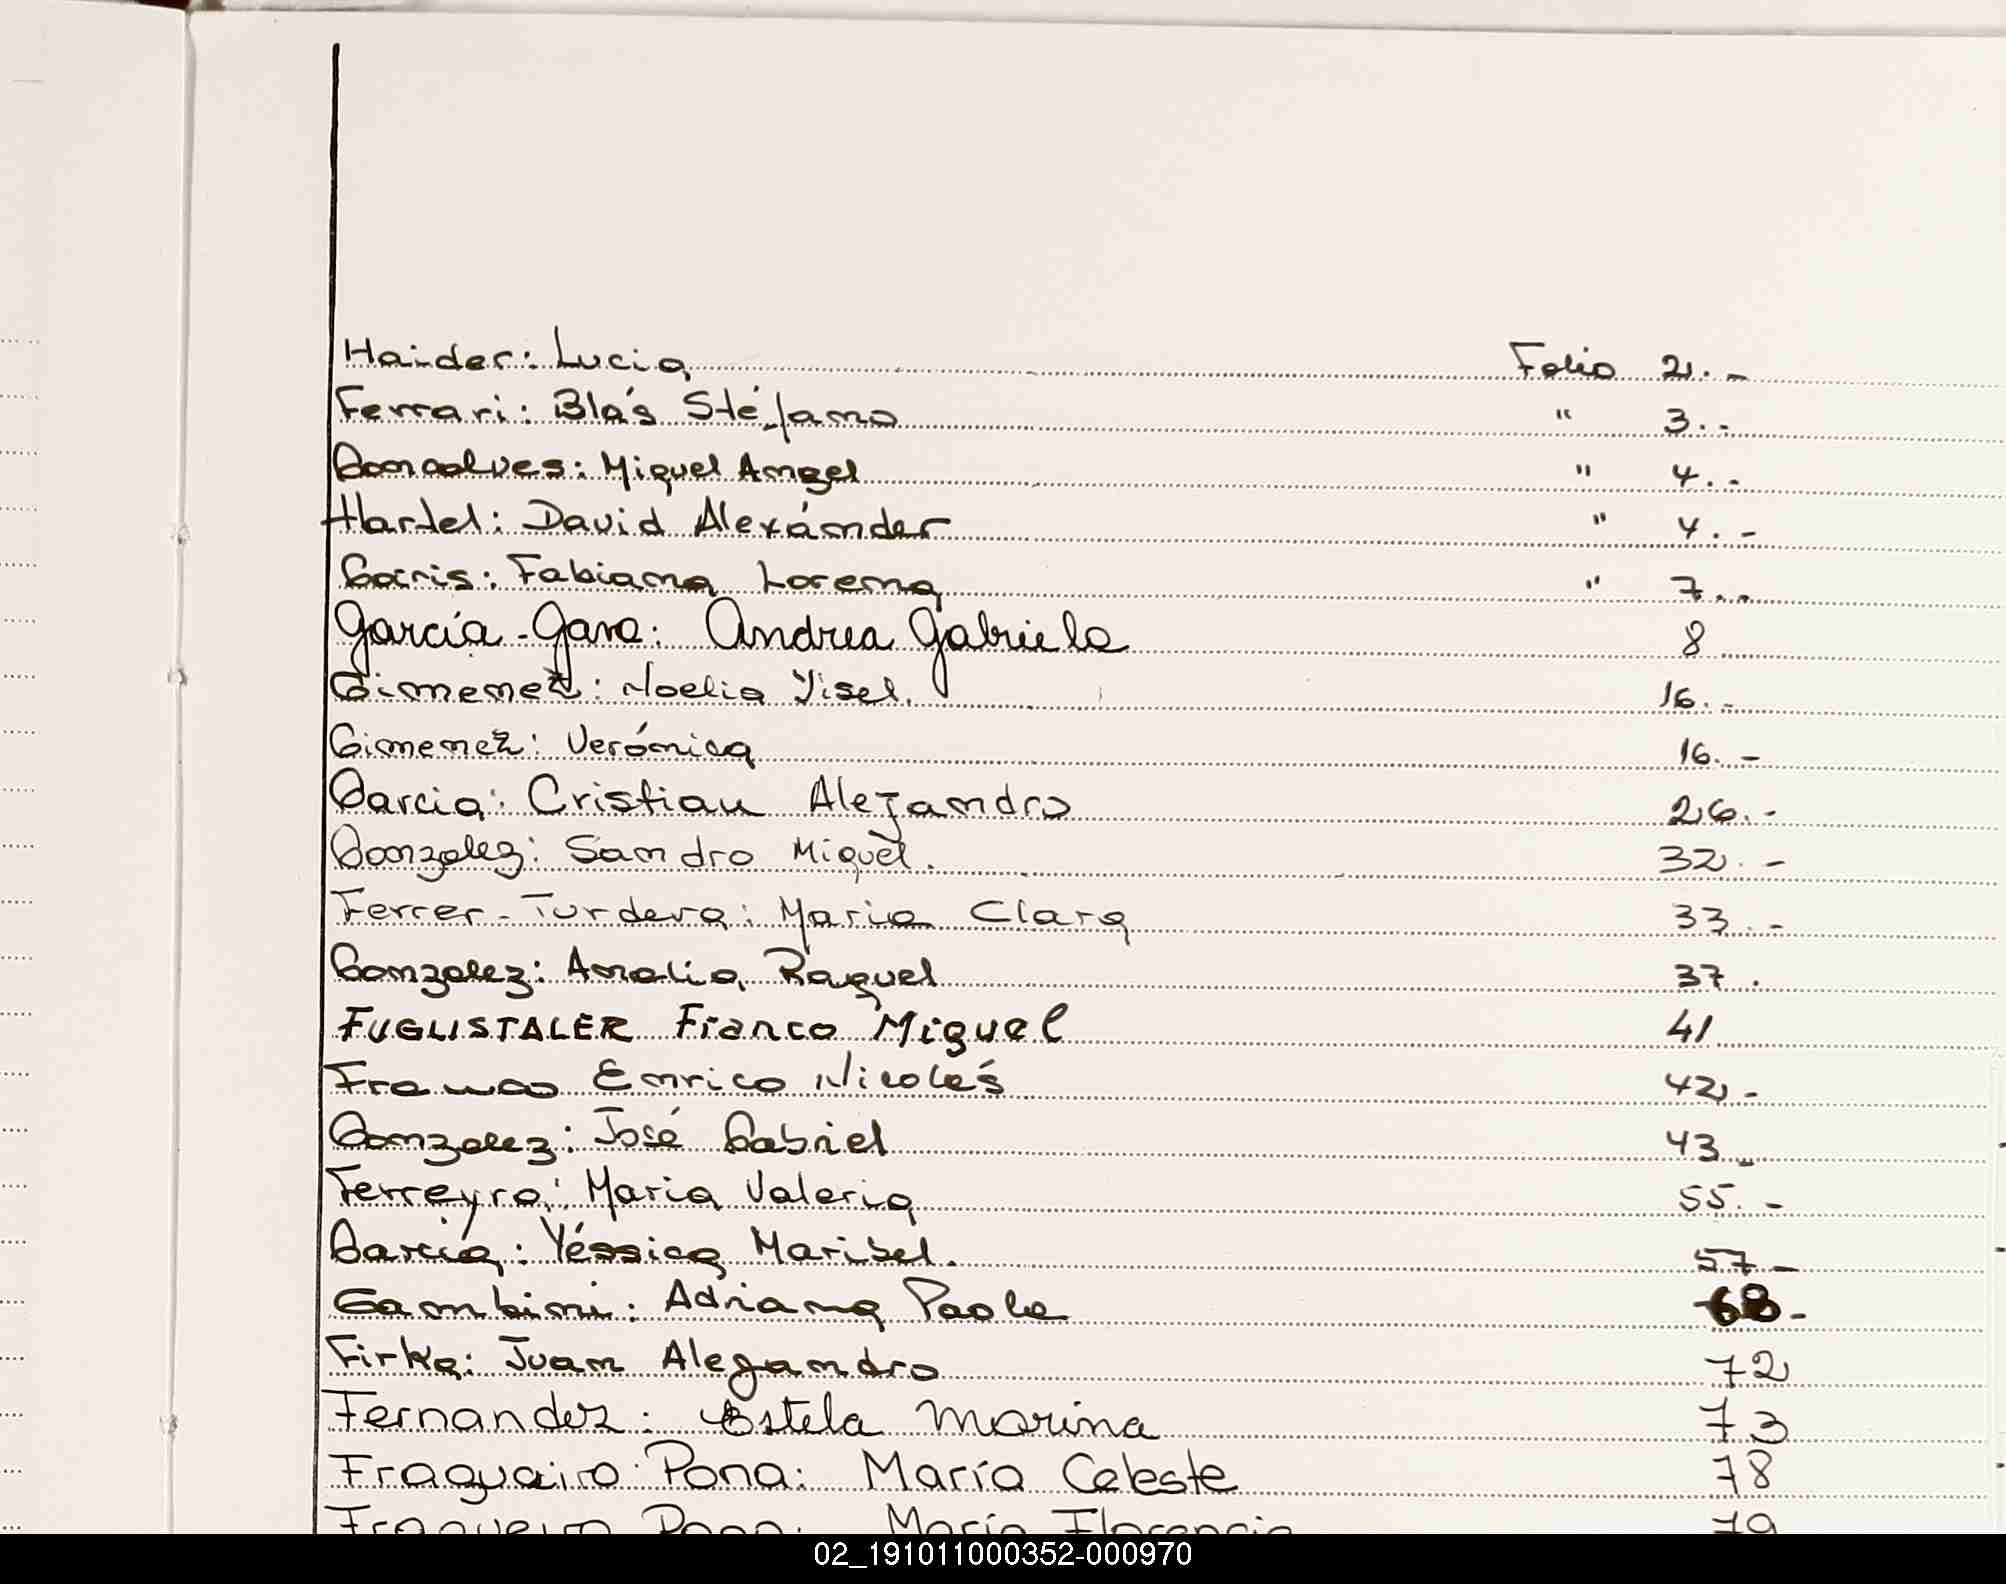 Haider: Lucia Folio 2. -
Ferrari: Blás Stéfano " 3. -
Goncalves: Miguel Angel " 4. -
Hartel: David Alexánder " 4. -
Goiris: Fabiana Lorena " 7. -
García-Gava: Andrea Gabriela 8
Gimenez: Noelia Yisel. 16. -
Gimenez: Verónica 16. -
Garcia: Cristian Alejandro 26. -
Gonzalez: Sandro Miguel. 32. -
Ferrer-Turdera: Maria Clara 33. -
Gonzalez: Amalia Raquel 37.
FUGLISTALER Franco Miguel 41
Franco Enrico Nicolás 42. -
Gonzalez: José Gabriel 43. -
Ferreyra: Maria Valeria 55. -
García: Yéssica Marisel. 57 -
Gambini: Adriana Paola 68 -
Firka: Juan Alejandro 72
Fernandez: Estela Marina 73
Fragueiro Pona: María Celeste 78
Fragueiro Pona: María Florencia 79
02_191011000352-000970